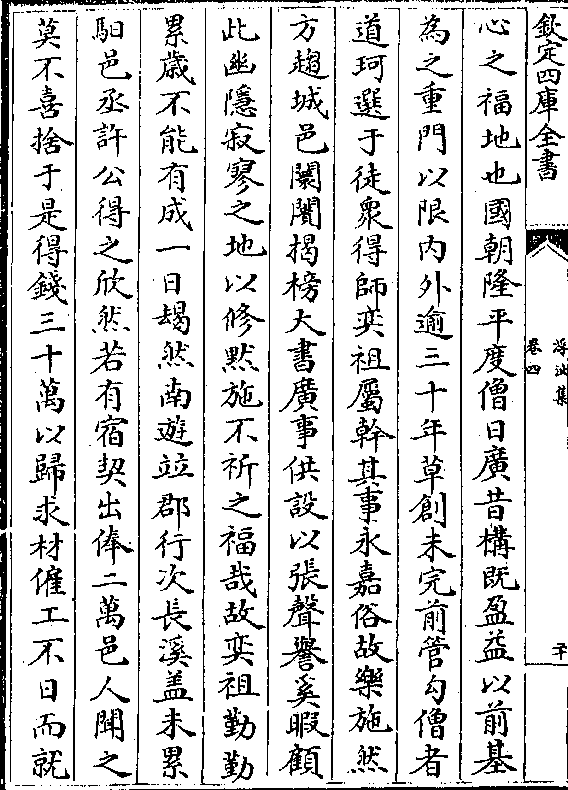 欽定四庫全書
浮沚集
卷四
二十
心之福地也國朝隆平度僧日廣昔構既盈益以前基
為之重門以限内外逾三十年草創未完前管勾僧者
道珂選于徒衆得師奕祖屬幹其事永嘉俗故樂施然
方趨城邑闤闠揭榜大書廣事供設以張聲譽奚暇顧
此幽隱寂寥之地以修黙施不祈之福哉故奕祖勤勤
累歳不能有成一日朅然南遊竝郡行次長溪盖未累
馹邑丞許公得之欣然若有宿契出俸二萬邑人聞之
莫不喜捨于是得錢三十萬以歸求材僱工不日而就